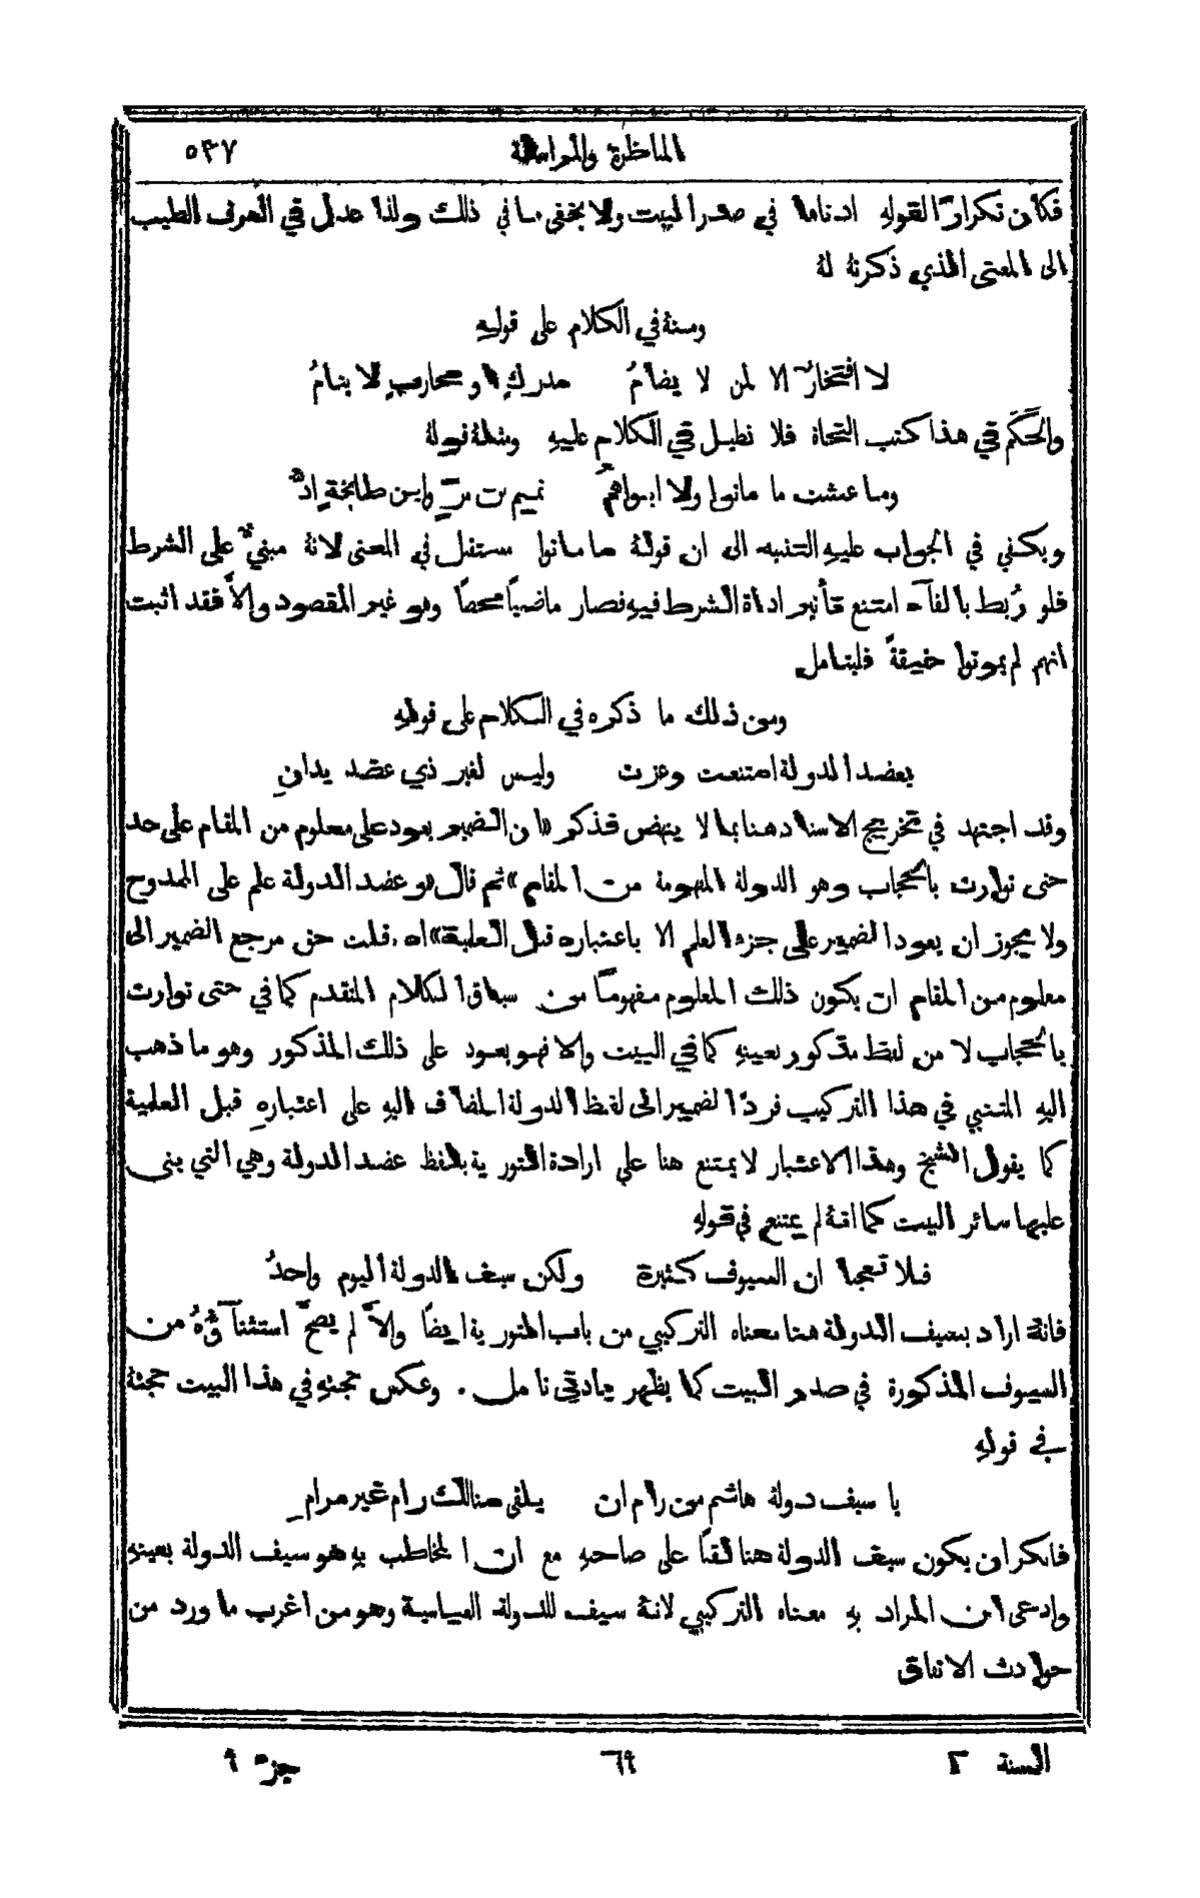 المناظرة والمراسلة ٥٣٧
فكان تكرارًا لقولهِ ادناها في صدر البيت ولا يخفى ما في ذلك ولذا عدل في العرف الطيب
الى المعنى الذي ذكرتهُ لهُ
ومنهُ في الكلام على قولهِ
لا افتخارٌ الا لمن لا يضامُ مدركٍ او محاربٍ لا ينامُ
والحَكَم في هذا كتب النحاة فلا نطيل في الكلام عليهِ ومثلهُ قولهُ
وما عشت ما ماتوا ولا ابواهمُ تميم بن مرٍّ وابن طابخةٍ ادُّ
ويكفي في الجواب عليهِ التنبيه الى ان قولهُ ما ماتوا مستقبل في المعنى لانهُ مبنيٌّ على الشرط
فلو رُبط بالفآء امتنع تأثير اداة الشرط فيهِ فصار ماضيًا محضًا وهو غير المقصود والاَّ فقد اثبت
انهم لم يموتوا حقيقةً فليتامل
ومن ذلك ما ذكره في الكلام على قولهِ
بعضد الدولة امتنعت وعزت وليس لغير ذي عضد يدانِ
وقد اجتهد في تخريج الاسناد هنا بما لا ينهض فذكر «ان الضمير يعود على معلوم من المقام على حد
حتى توارت بالحجاب وهو الدولة المفهومة من المقام» ثم قال «وعضد الدولة علم على الممدوح
ولا يجوز ان يعود الضمير على جزء العلم الا باعتباره قبل العلمية» اه. قلت حق مرجع الضمير الى
معلوم من المقام ان يكون ذلك المعلوم مفهومًا من سياق الكلام المتقدم كما في حتى توارت
بالحجاب لا من لفظ مذكور بعينهِ كما في البيت والا فهو يعود على ذلك المذكور وهو ما ذهب
اليهِ المتنبي في هذا التركيب فردّ الضمير الى لفظ الدولة المضاف اليهِ على اعتبارهِ قبل العلمية
كما يقول الشيخ وهذا الاعتبار لا يمتنع هنا على ارادة التورية بلفظ عضد الدولة وهي التي بنى
عليها سائر البيت كما انهُ لم يمتنع في قولهِ
فلا تعجبا ان السيوف كثيرة ولكن سيف الدولة اليوم واحدُ
فانهُ اراد بسيف الدولة هنا معناه التركيبي من باب التورية ايضًا والاَّ لم يصحَّ استثنآؤهُ من
السيوف المذكورة في صدر البيت كما يظهر بادنى تامل . وعكس حجتهِ في هذا البيت حجتهُ
في قولهِ
يا سيف دولة هاشم من رام ان يلقى منالك رام غير مرامِ
فانكر ان يكون سيف الدولة هنا لقبًا على صاحبهِ مع ان المخاطب بهِ هو سيف الدولة بعينهِ
وادعى ان المراد بهِ معناه التركيبي لانهُ سيف للدولة العباسية وهو من اغرب ما ورد من
حوادث الاتفاق
السنة ٢ ٦٩ جزء ٩